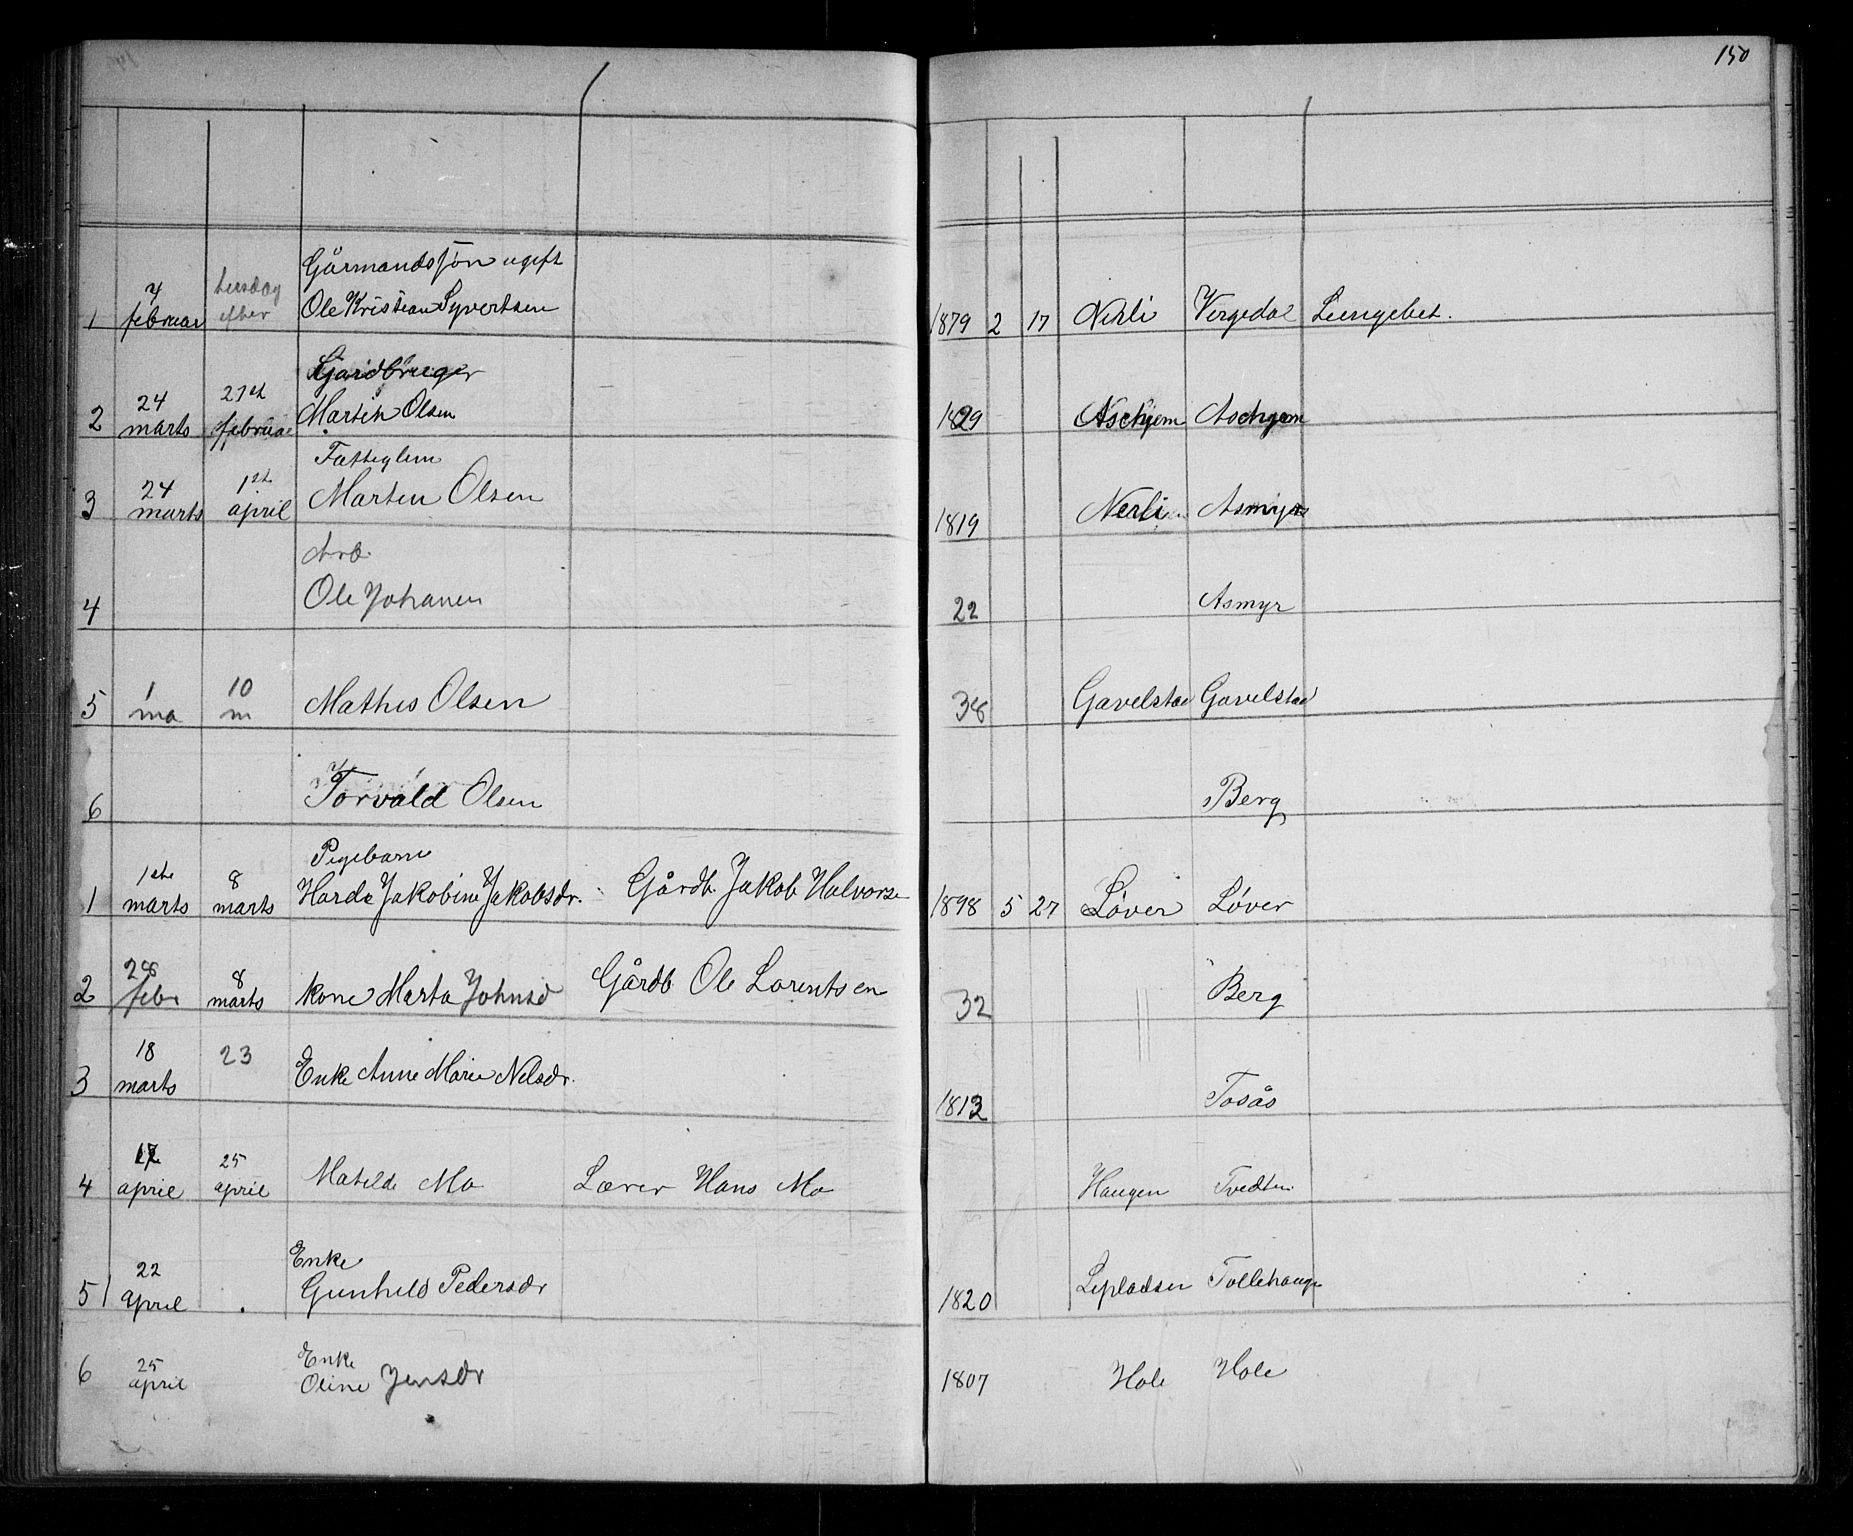 150
Gårmandssøn ugift
1 4 februar tirsdag efter Ole Kristian Syvertsen 1879 2 17 Nerli Vergedal Lungebet.
Gardbruger
2 24 marts 27st februar Martin Olsen 1829 Aschjem Aschjem
Fattiglem
3 24 marts 1st april Martin Olsen 1819 Nerli Asmyr
Arb.
4 Ole Johansen 22 Asmyr
5 1 ma 10 m Mathis Olsen 38 Gavelstad Gavelstad
6 Torvald Olsen Berg
Pigebarn
1 1ste marts 8 marts Harda Jakobine Jakobsdr. Gårdb. Jakob Halvorse 1898 5 27 Løver Løver
2 28 febr 8 marts Kone Marta Johnsd Gårdb Ole Lorentsen 32 Berg
3 18 marts 23 Enke Anne Marie Nelsdr. 1813 Tosås
4 april 25 april Matilde Mo Lærer Hans Mo Haugen Tvedten
Enke
5 22 april . Gunhild Pedersdr 1820 Lepladsen Tollehaugen
Enke
6 25 april Oline Jensdr 1807 Hole Hole